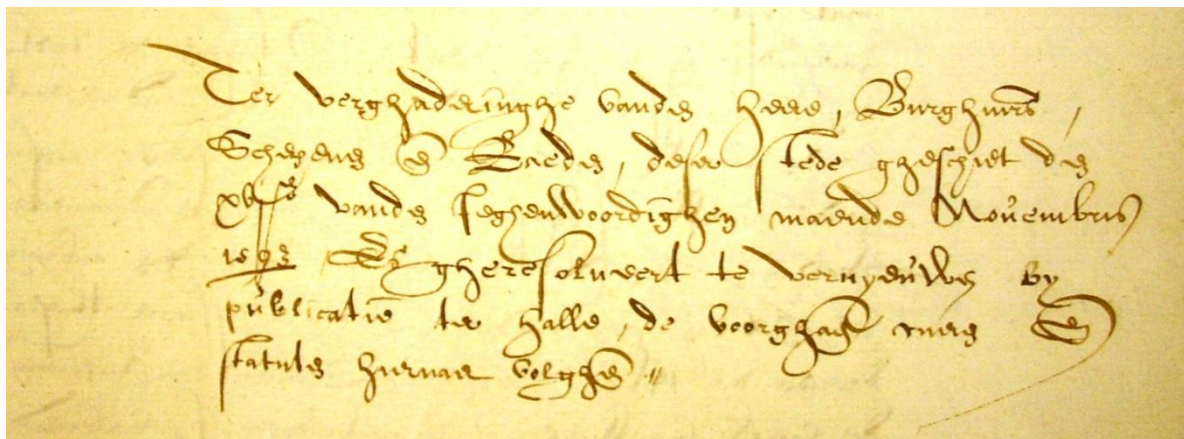 Ter verghaderinghe vanden heere, Burghmrs,
Schepens eñ Raeden, deser stede gheschiet den
xvjen vanden jeghenwoordighen maende Novembris
Es gheresolveert te vernyeuwen by
publicatie ter halle, de voorghaē cueren eñ
statuten hiernaer volghē